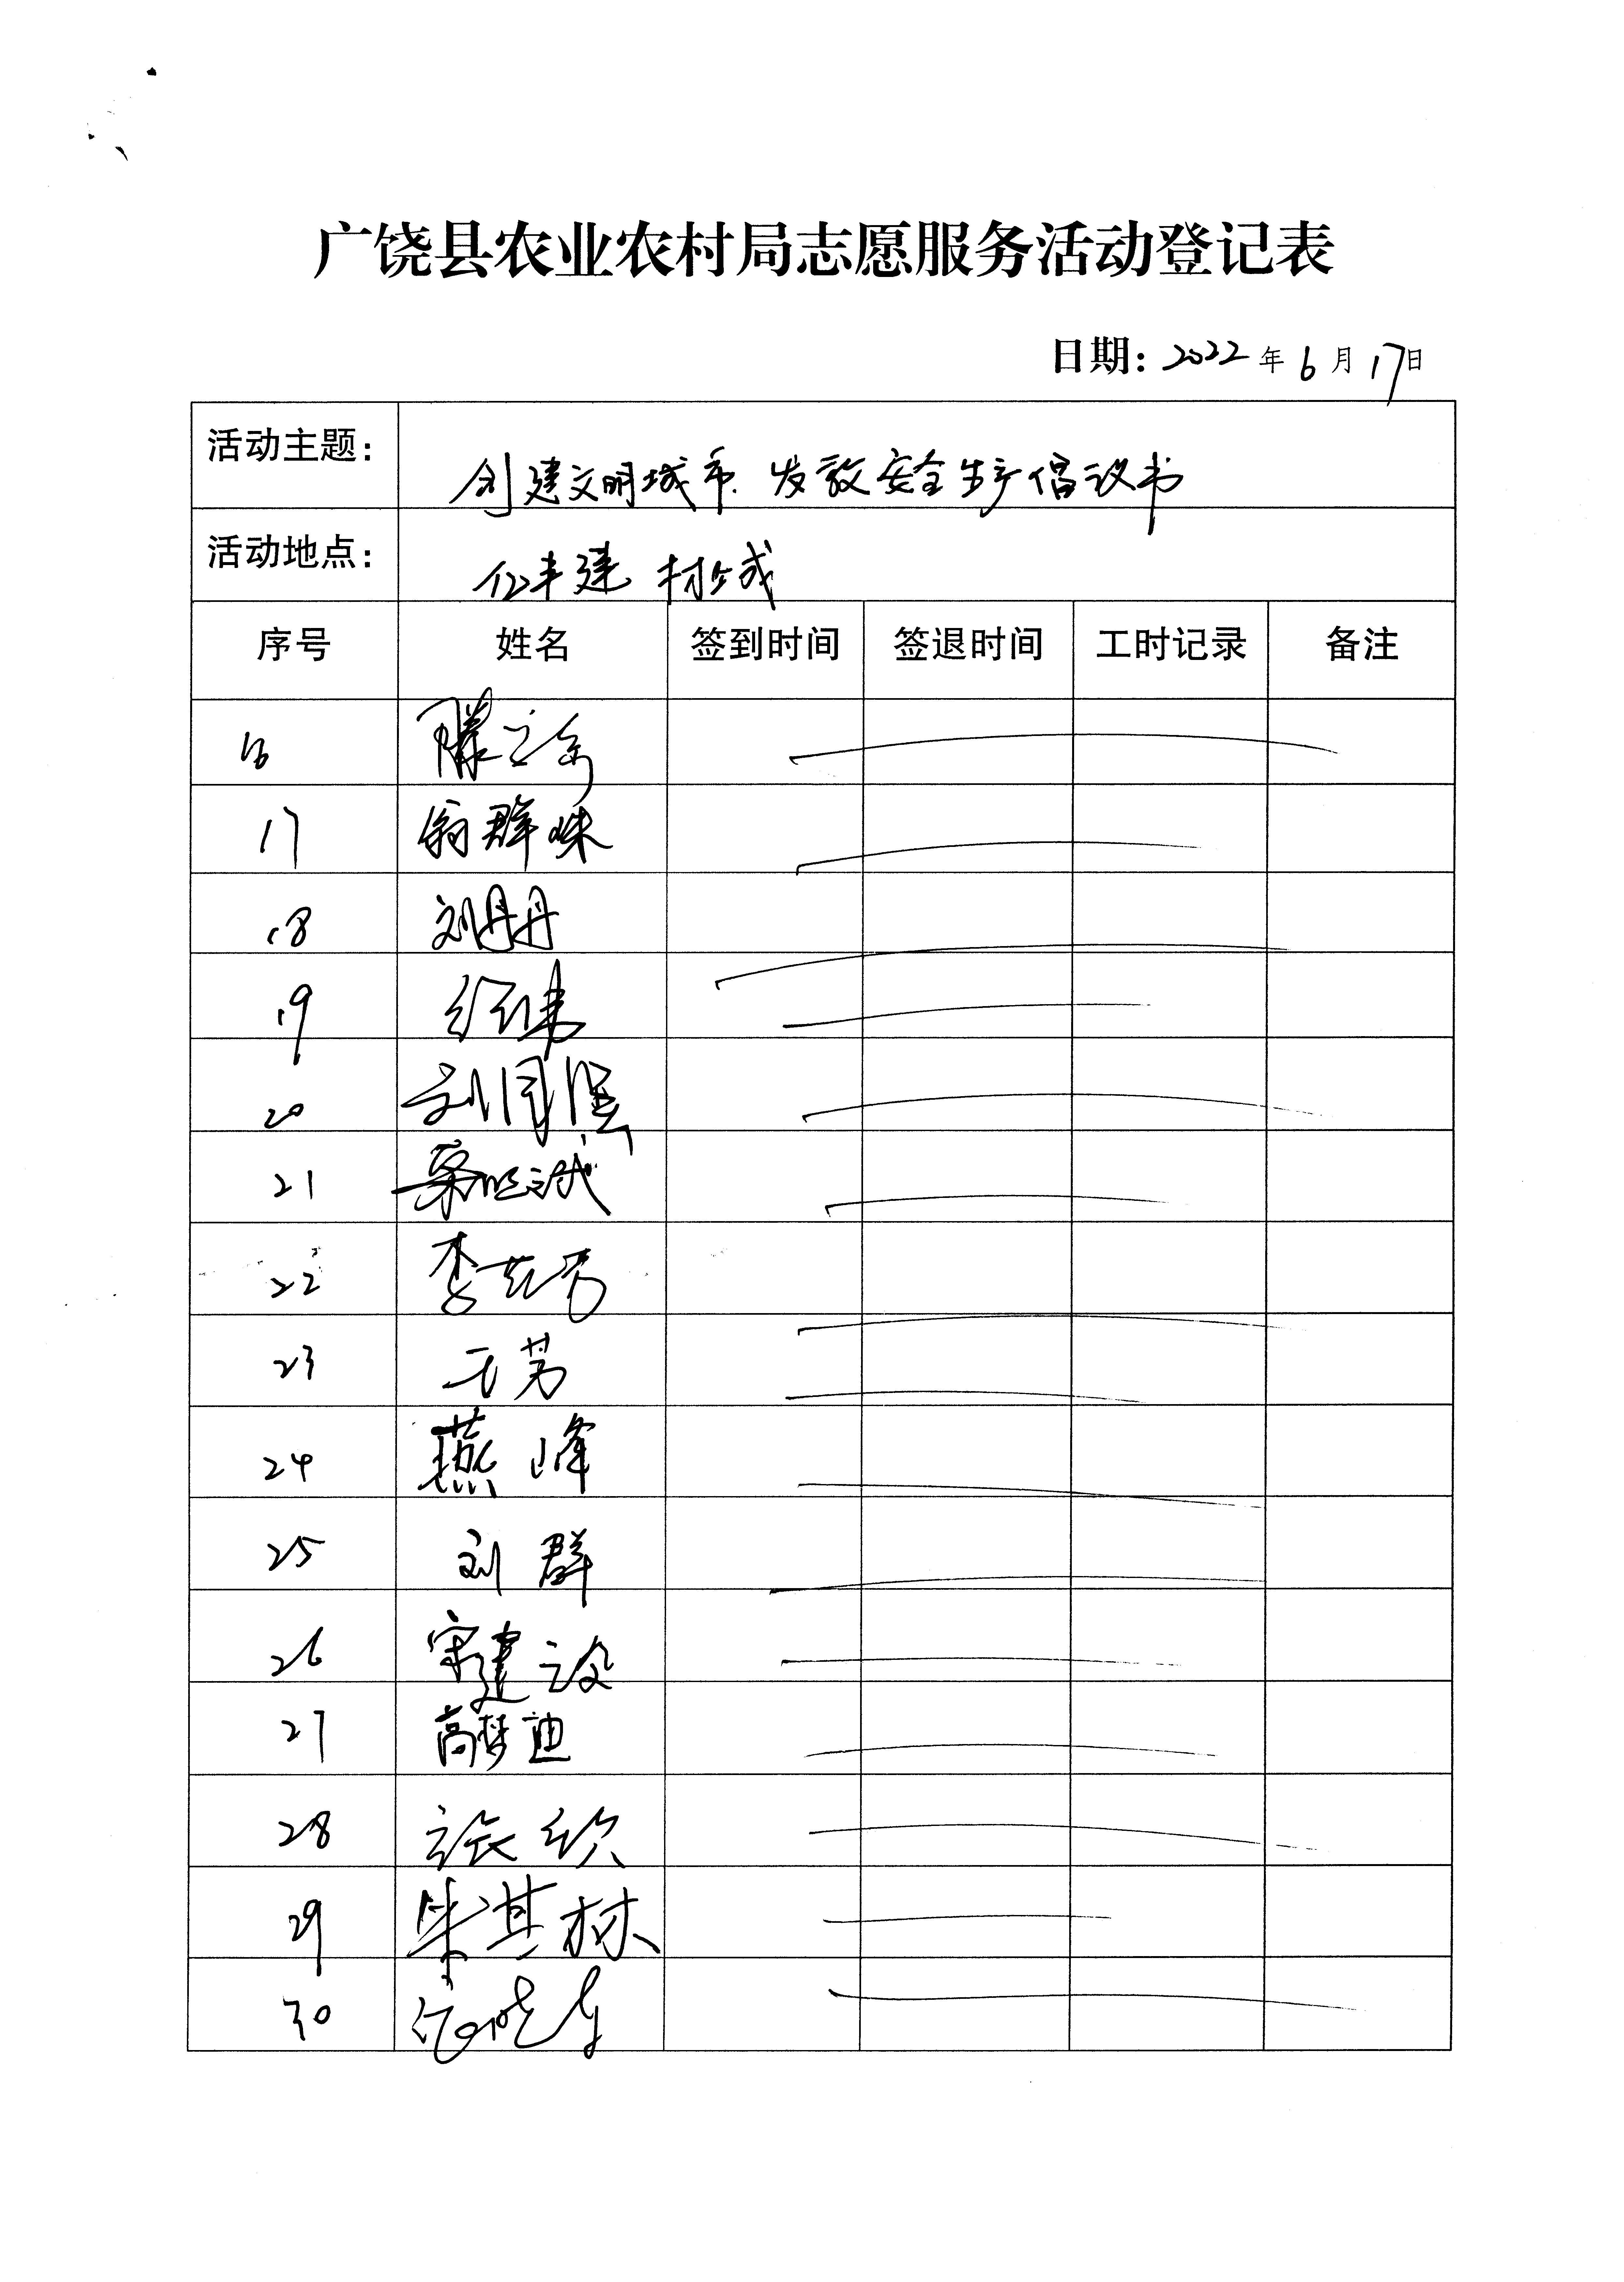 广饶县农业农村局志愿服务活动登记表
日期: 2022 年 6 月 17日
活动主题: 创建文明城市. 发放安全生产倡议书
活动地点: 亿丰建材城
序号 姓名 签到时间 签退时间 工时记录 备注
16 滕立
17 翁群咪
18 刘丹丹
19
20 刘同
21 诚
22 李芳
23 于芳
24 燕峰
25 刘群
26 宋建设
27 高梦迪
28 张欣
29 朱其林
30 晓